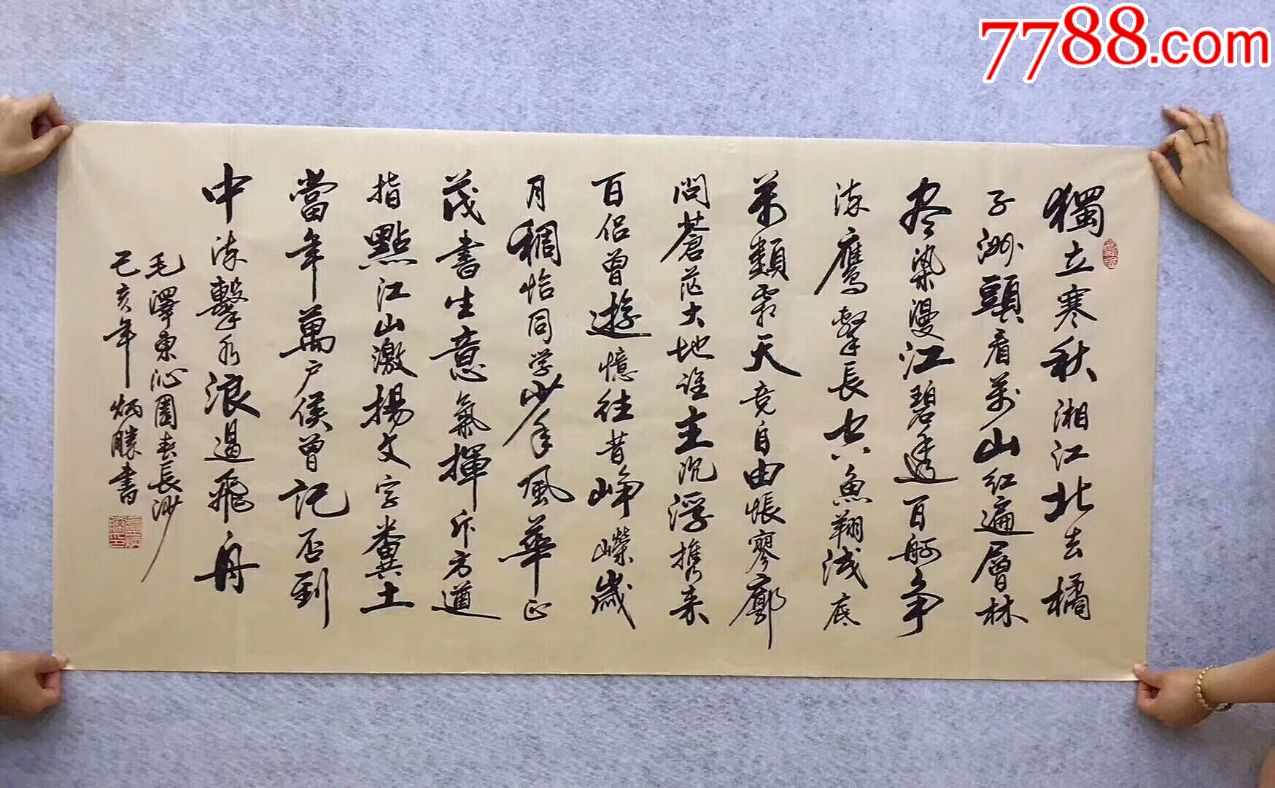 7788.com
獨立寒秋湘江北去橘
子洲頭看萬山红遍層林
尽染漫江碧透百舸争
流鹰擊長空魚翔浅底
萬類霜天竞自由悵寥廓
問蒼茫大地谁主沉浮携来
百侣曾遊憶往昔峥嶸歲
月稠恰同学少年風華正
茂書生意氣揮斥方遒
指點江山激揚文字糞土
當年萬户侯曾記否到
中流擊水浪遏飛舟
毛澤東沁園春長沙
己亥年炳勝書